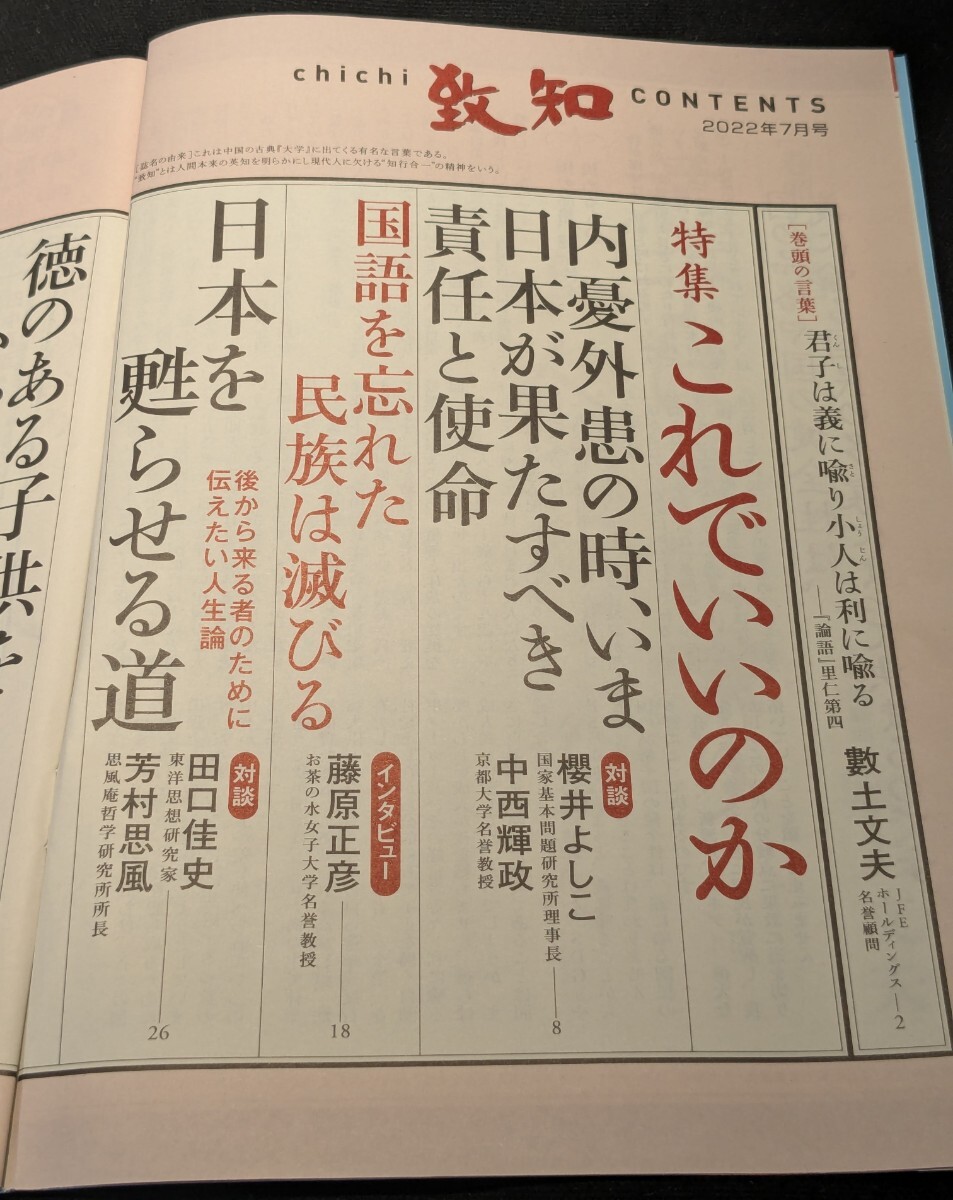 chichi 致知 CONTENTS
2022年7月号
[誌名の由来]これは中国の古典『大学』に出てくる有名な言葉である。
“致知”とは人間本来の英知を明らかにし現代人に欠ける“知行合一”の精神をいう。
[巻頭の言葉]
君子は義に喩り小人は利に喩る
くんし
さと
しょうじん
――『論語』里仁第四
數土文夫
JFE
ホールディングス
名誉顧問
2
特集 これでいいのか
内憂外患の時、いま
日本が果たすべき
責任と使命
対談
櫻井よしこ
国家基本問題研究所理事長
中西輝政
京都大学名誉教授
8
国語を忘れた
民族は滅びる
インタビュー
藤原正彦
お茶の水女子大学名誉教授
18
日本を
甦らせる道
後から来る者のために
伝えたい人生論
対談
田口佳史
東洋思想研究家
芳村思風
思風庵哲学研究所所長
26
徳のある子供を